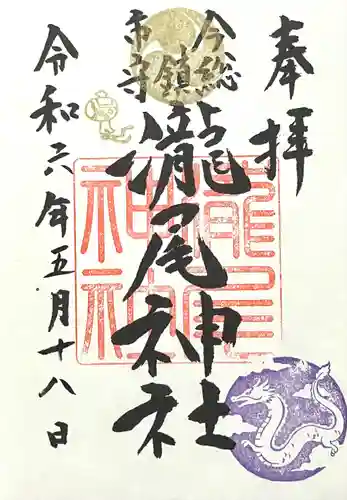 奉拝
今市
総鎮守
瀧尾神社
瀧尾
神社
令和六年五月十八日